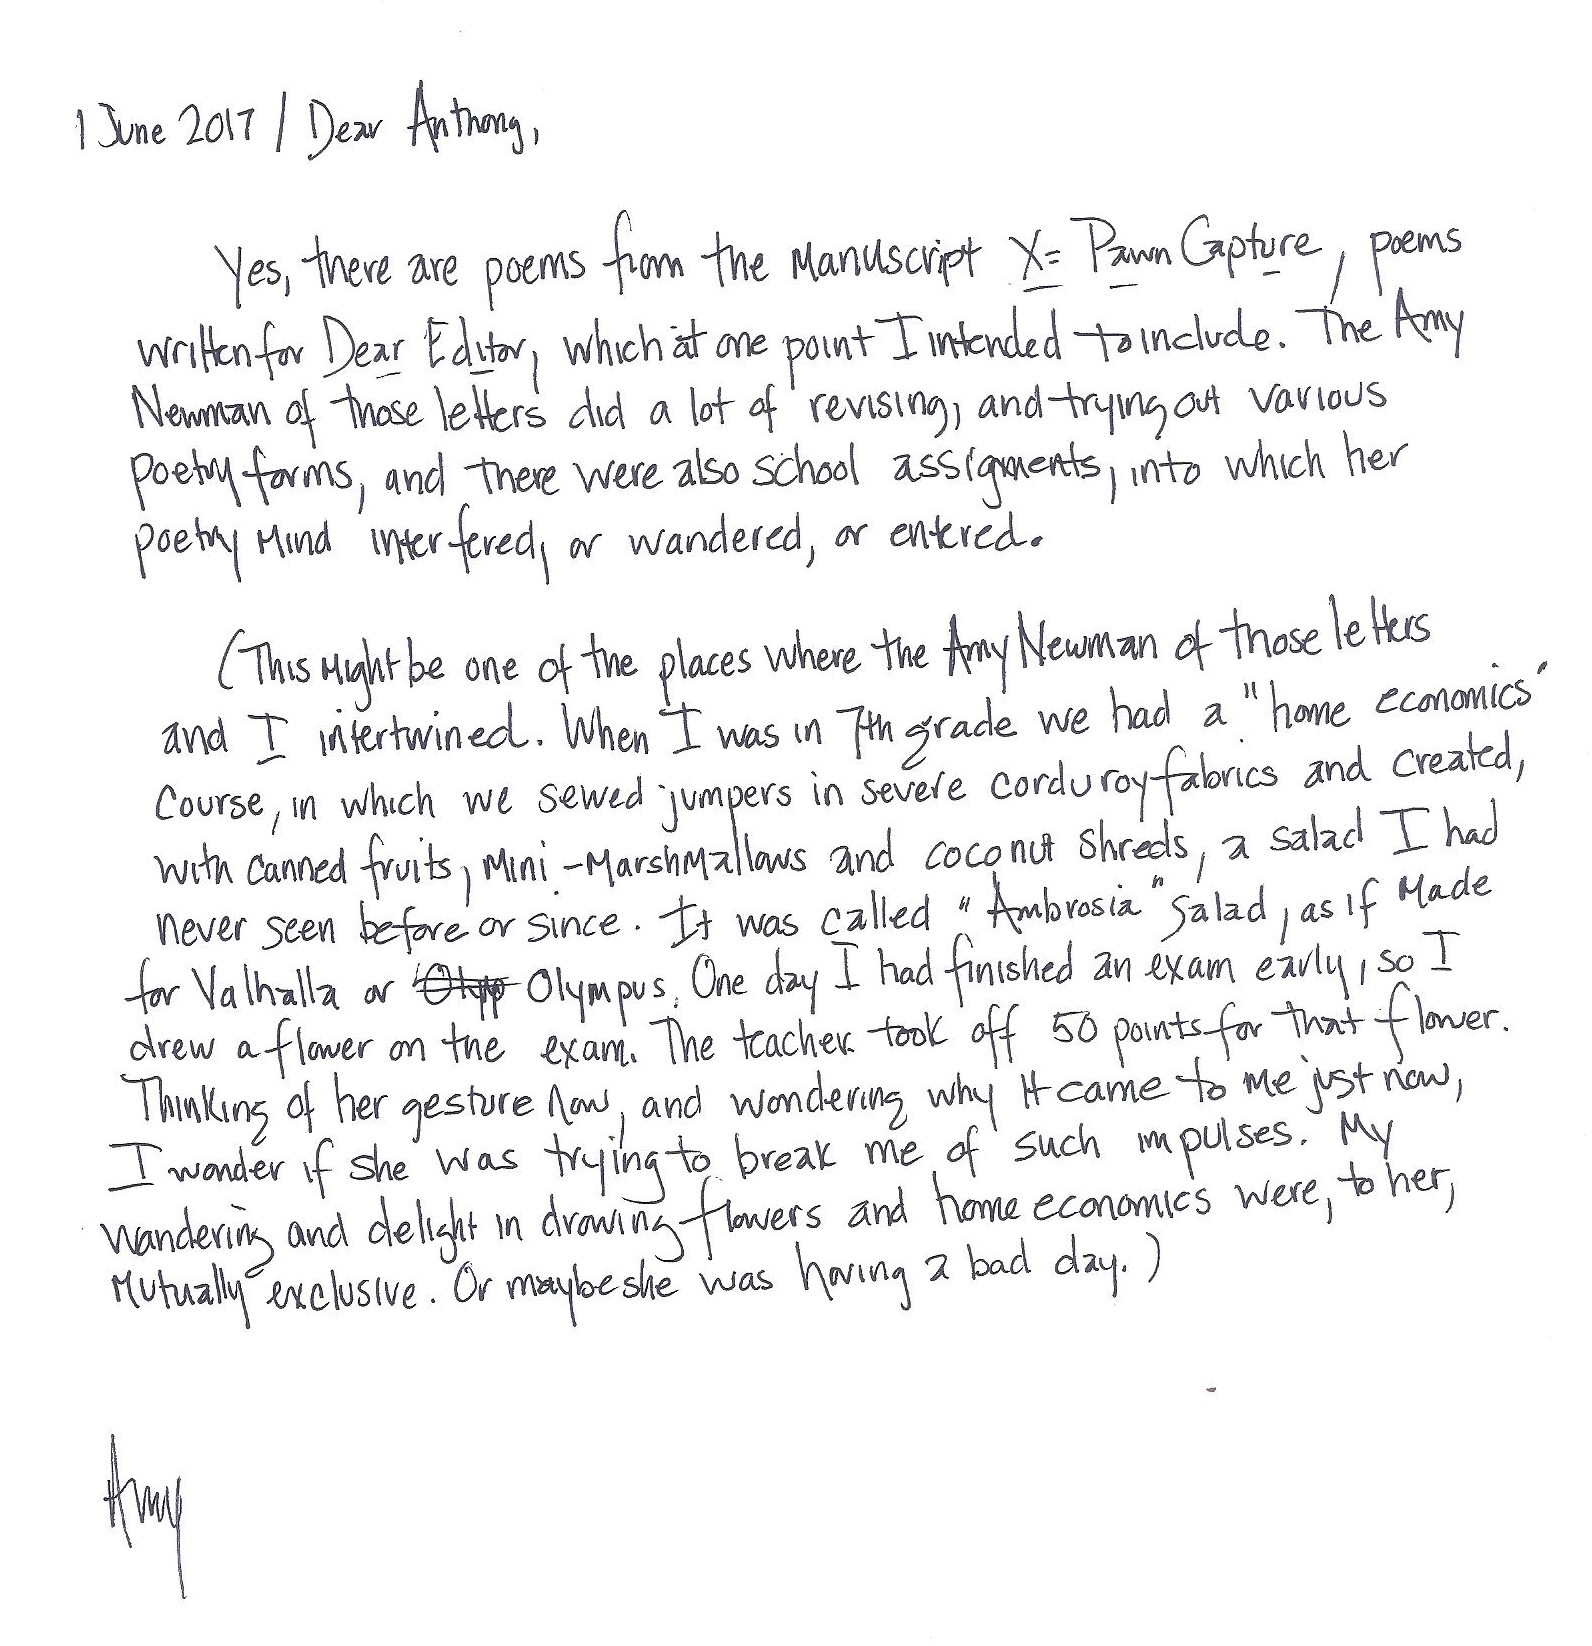 1 June 2017 / Dear Anthony,
Yes, there are poems from the manuscript X = Pawn Capture, poems
written for Dear Editor, which at one point I intended to include. The Amy
Newman of those letters did a lot of revising, and trying out various
poetry forms, and there were also school assignments, into which her
poetry mind interfered, or wandered, or entered.
(This might be one of the places where the Amy Newman of those letters
and I intertwined. When I was in 7th grade we had a "home economics"
course, in which we sewed jumpers in severe corduroy fabrics and created,
with canned fruits, mini-marshmallows and coconut shreds, a salad I had
never seen before or since. It was called "Ambrosia" salad, as if made
for Valhalla or Olympus. One day I had finished an exam early, so I
drew a flower on the exam. The teacher took off 50 points for that flower.
Thinking of her gesture now, and wondering why it came to me just now,
I wonder if she was trying to break me of such impulses. My
wandering and delight in drawing flowers and home economics were, to her,
mutually exclusive. Or maybe she was having a bad day.)
Amy